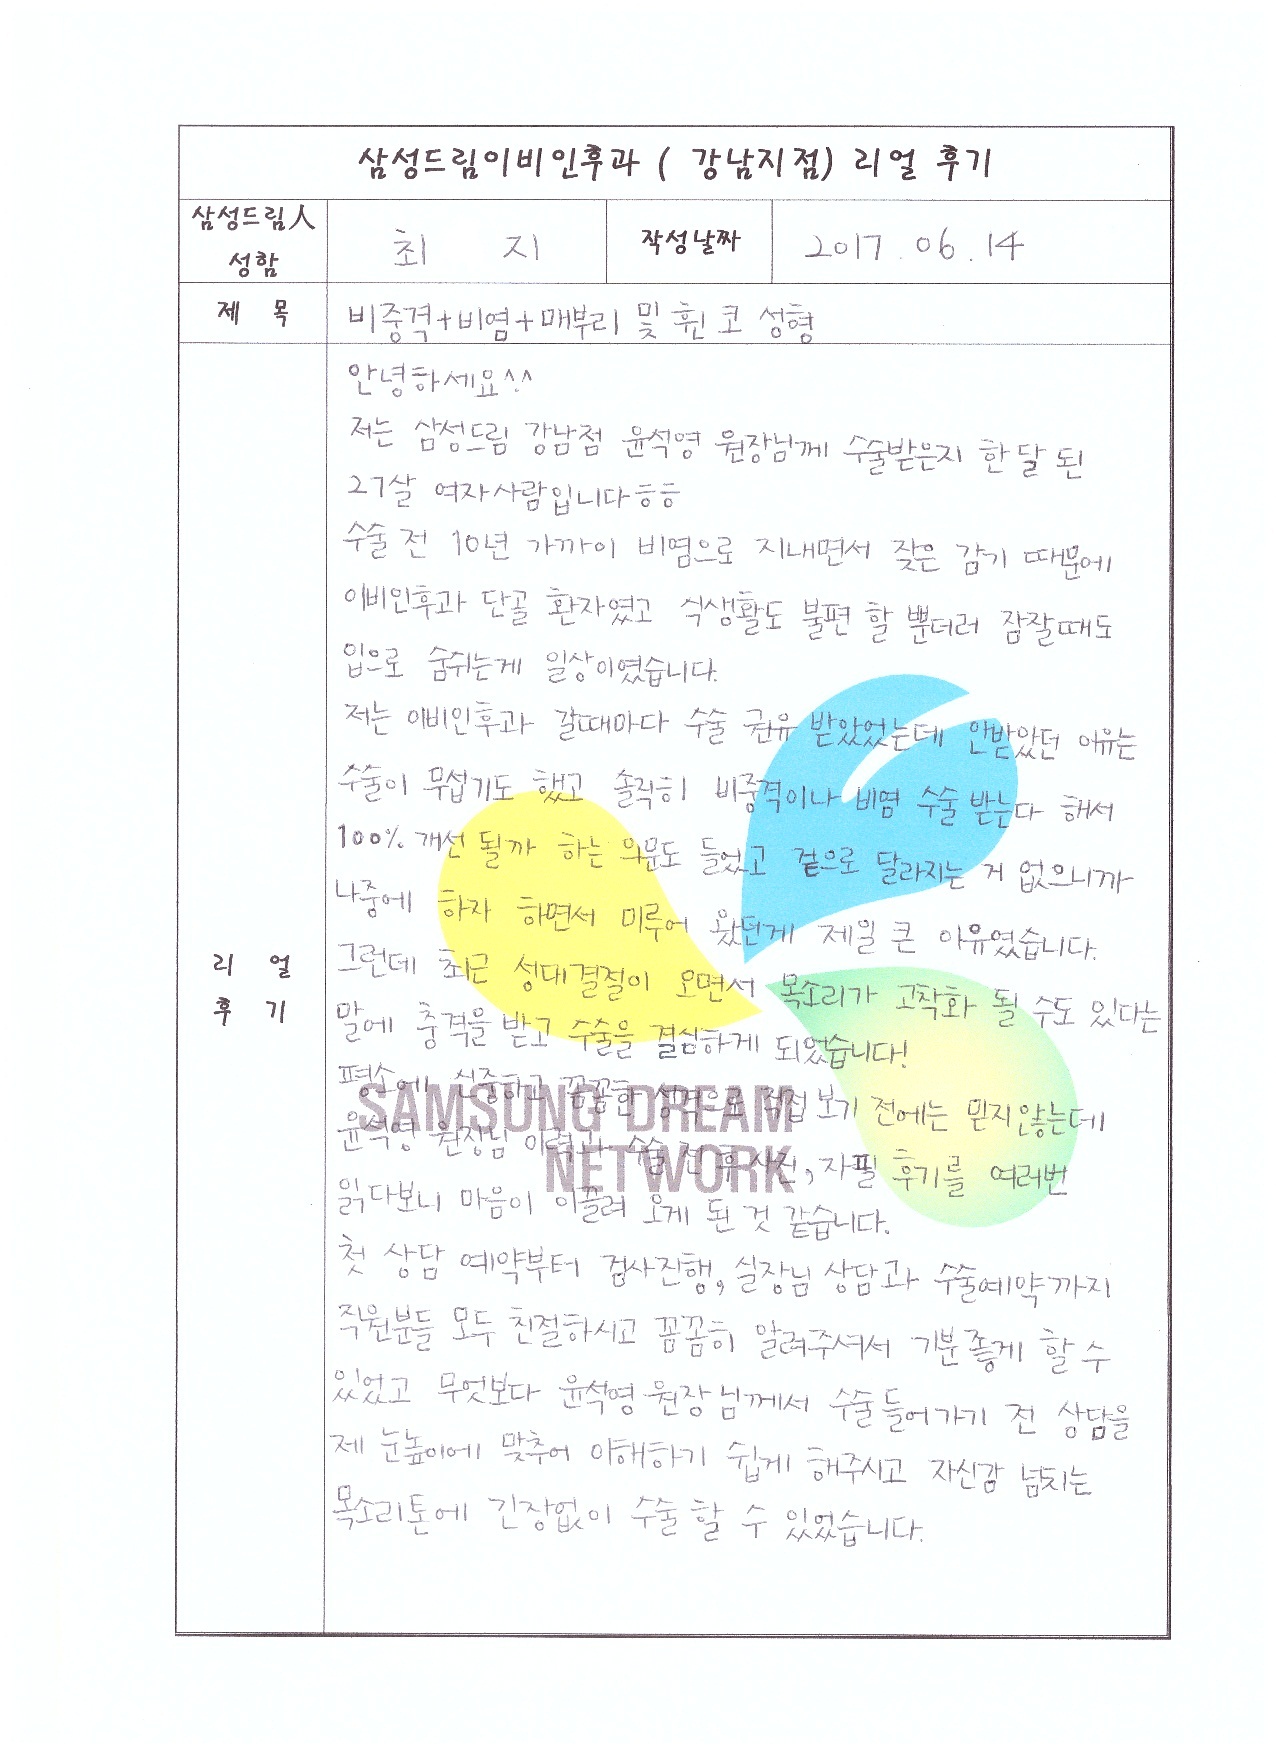 삼성드림이비인후과 ( 강남지점) 리얼 후기
삼성드림人
성함
최 지
작성날짜
2017. 06. 14
제 목
비중격+비염+매부리 및 휜 코 성형
리 얼
후 기
안녕하세요^.^
저는 삼성드림 강남점 윤석영 원장님께 수술받은지 한달 된
27살 여자사람입니다ㅎㅎ
수술 전 10년 가까이 비염으로 지내면서 잦은 감기 때문에
이비인후과 단골 환자였고 식생활도 불편 할 뿐더러 잠잘때도
입으로 숨쉬는게 일상이였습니다.
저는 이비인후과 갈때마다 수술 권유 받았었는데 안받았던 이유는
수술이 무섭기도 했고 솔직히 비중격이나 비염 수술 받는다 해서
100% 개선 될까 하는 의문도 들었고 겉으로 달라지는 거 없으니까
나중에 하자 하면서 미루어 왔던게 제일 큰 이유였습니다.
그런데 최근 성대결절이 오면서 목소리가 고착화 될 수도 있다는
말에 충격을 받고 수술을 결심하게 되었습니다!
평소에 신중하고 꼼꼼한 성격으로 직접 보기 전에는 믿지않는데
윤석영 원장님 이력과 수술 전 후 사진, 자필 후기를 여러번
읽다보니 마음이 이끌려 오게 된 것 같습니다.
첫 상담 예약부터 검사진행, 실장님 상담과 수술예약까지
직원분들 모두 친절하시고 꼼꼼히 알려주셔서 기분좋게 할 수
있었고 무엇보다 윤석영 원장님께서 수술들어가기 전 상담을
제 눈높이에 맞추어 이해하기 쉽게 해주시고 자신감 넘치는
목소리톤에 긴장없이 수술 할 수 있었습니다.
SAMSUNG DREAM
NETWORK